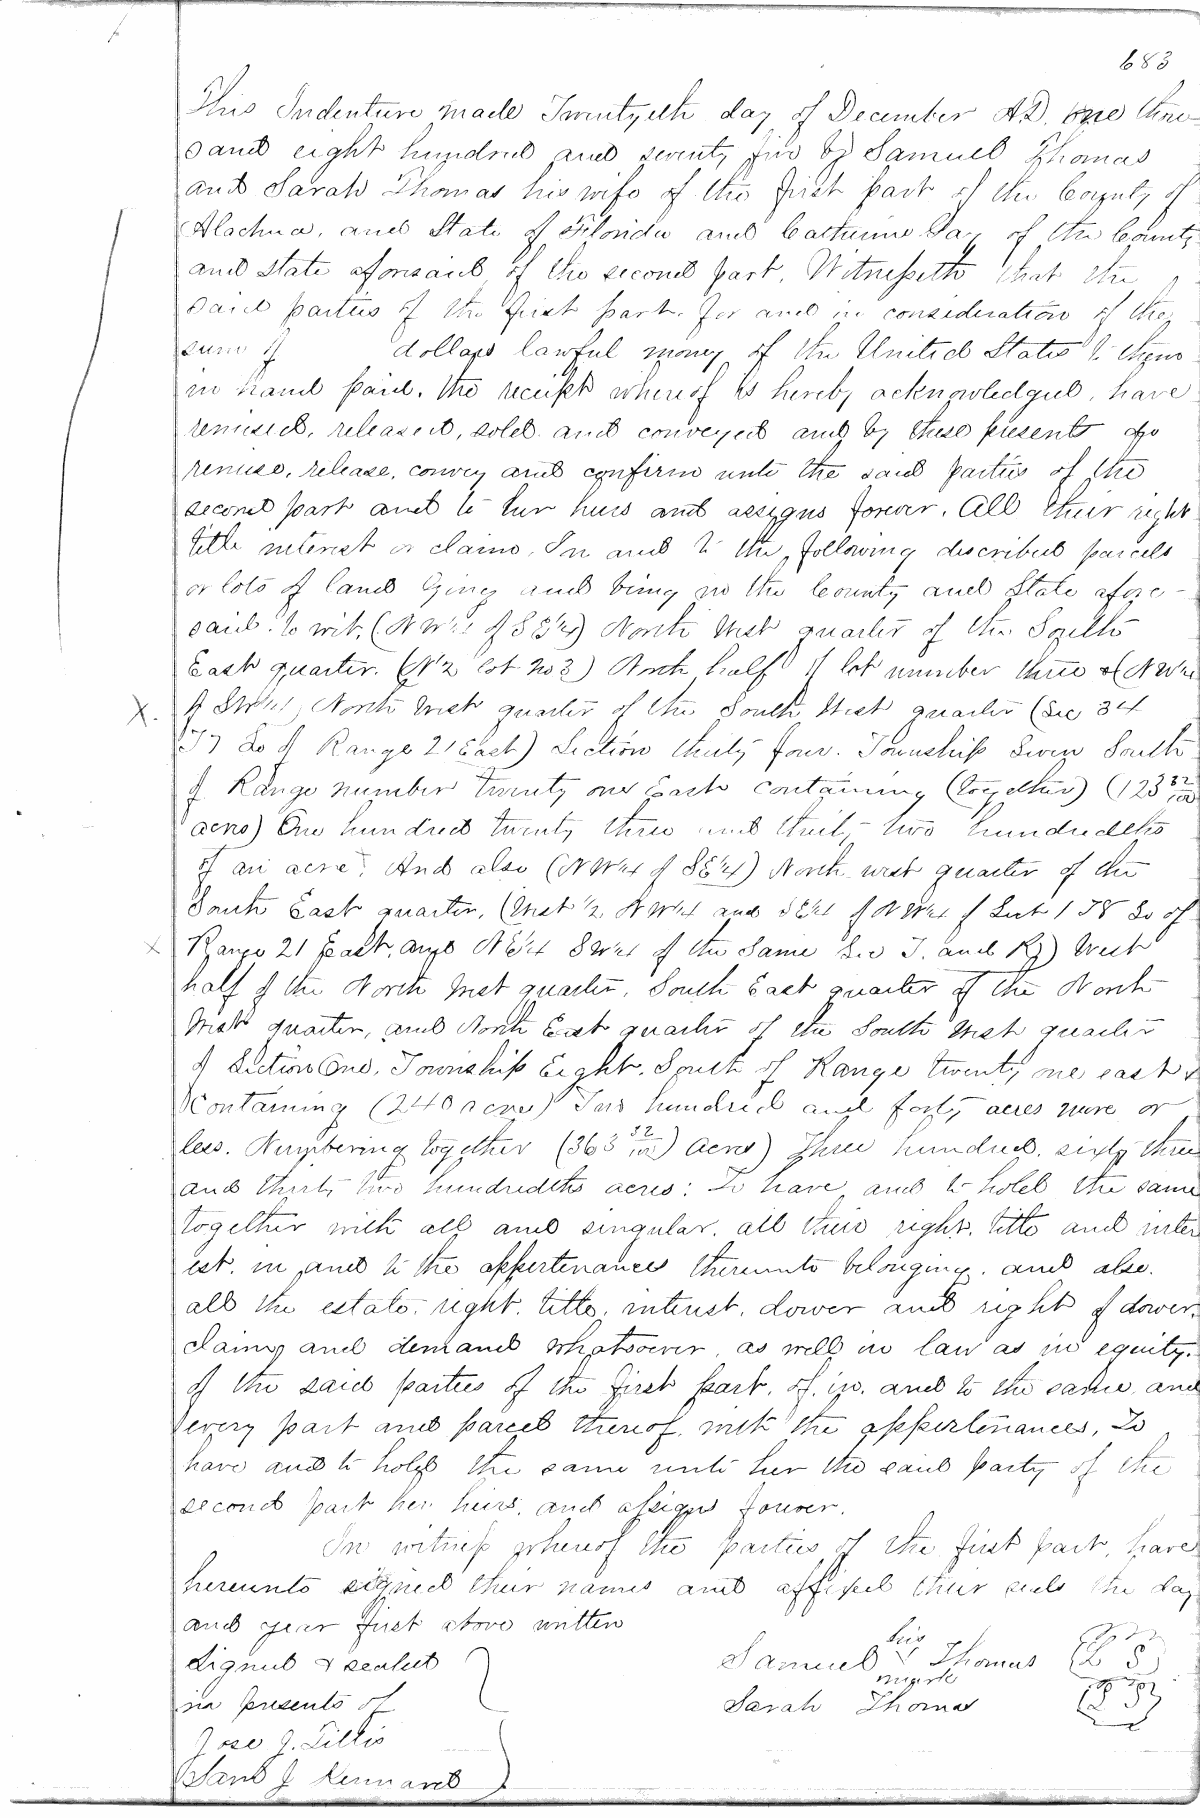 683
This Indenture made Twentyeth day of December A.D. one thou-
sand eight hundred and seventy five by Samuel Thomas
and Sarah Thomas his wife of the first part of the County of
Alachua, and State of Florida and Catherine of the County
and State aforesaid, of the second part, Witnesseth that the
said parties of the first part, for and in consideration of the
sum of dollars lawful money of the United States to them
in hand paid, the receipt whereof is hereby acknowledged, have
remised, released, sold and conveyed and by these presents do
remise, release, convey and confirm unto the said parties of the
second part and to her heirs and assigns forever, All their right
title interest or claim, In and to the following described parcels
or lots of land lying and being in the County and State afore-
said. to wit, (NW1/4 of SE1/4) North West quarter of the South
East quarter. (N1/2 lot No 3) North half of lot number three & (NW1/4
X. of SW1/4) North West quarter of the South West quarter (Sec 34
T7 So of Range 21 East) Section thirty four. Township Seven South
of Range number twenty one East containing (together) (123 32/100
acres) One hundred twenty three and thirty two hundredths
of an acre. And also (NW1/4 of SE1/4) North west quarter of the
South East quarter, (West 1/2 NW1/4 and SE1/4 of NW1/4 of Sect 1 T8 So of
x Range 21 East, and NE1/4 SW1/4 of the Same Sec T. and R) West
half of the North West quarter, South East quarter of the North
West quarter, and North East quarter of the South West quarter
of Section One, Township Eight, South of Range twenty one east &
Containing (240 acres) Two hundred and forty acres more or
less. Numbering together (363 32/100) acres) Three hundred, sixty three
and thirty two hundredths acres: To have and to hold the same
together with all and singular, all their right, title and inter
est, in and to the appertenances thereunto belonging, and also.
all the estate, right, title, interest, dower and right of dower,
claim and demand whatsoever, as well in law as in equity,
of the said parties of the first part, of, in, and to the same, and
every part and parcel thereof, with the appertenances, To
have and to hold the same unto her the said party of the
second part her heirs, and assigns forever.
In witness whereof the parties of the first part, have
hereunto signed their names and affixed their seals the day
and year first above written
Signed & sealed
in presents of
Samuel his X mark Thomas (L S)
Sarah Thomas (L S)
J. Tillis
J Kennard